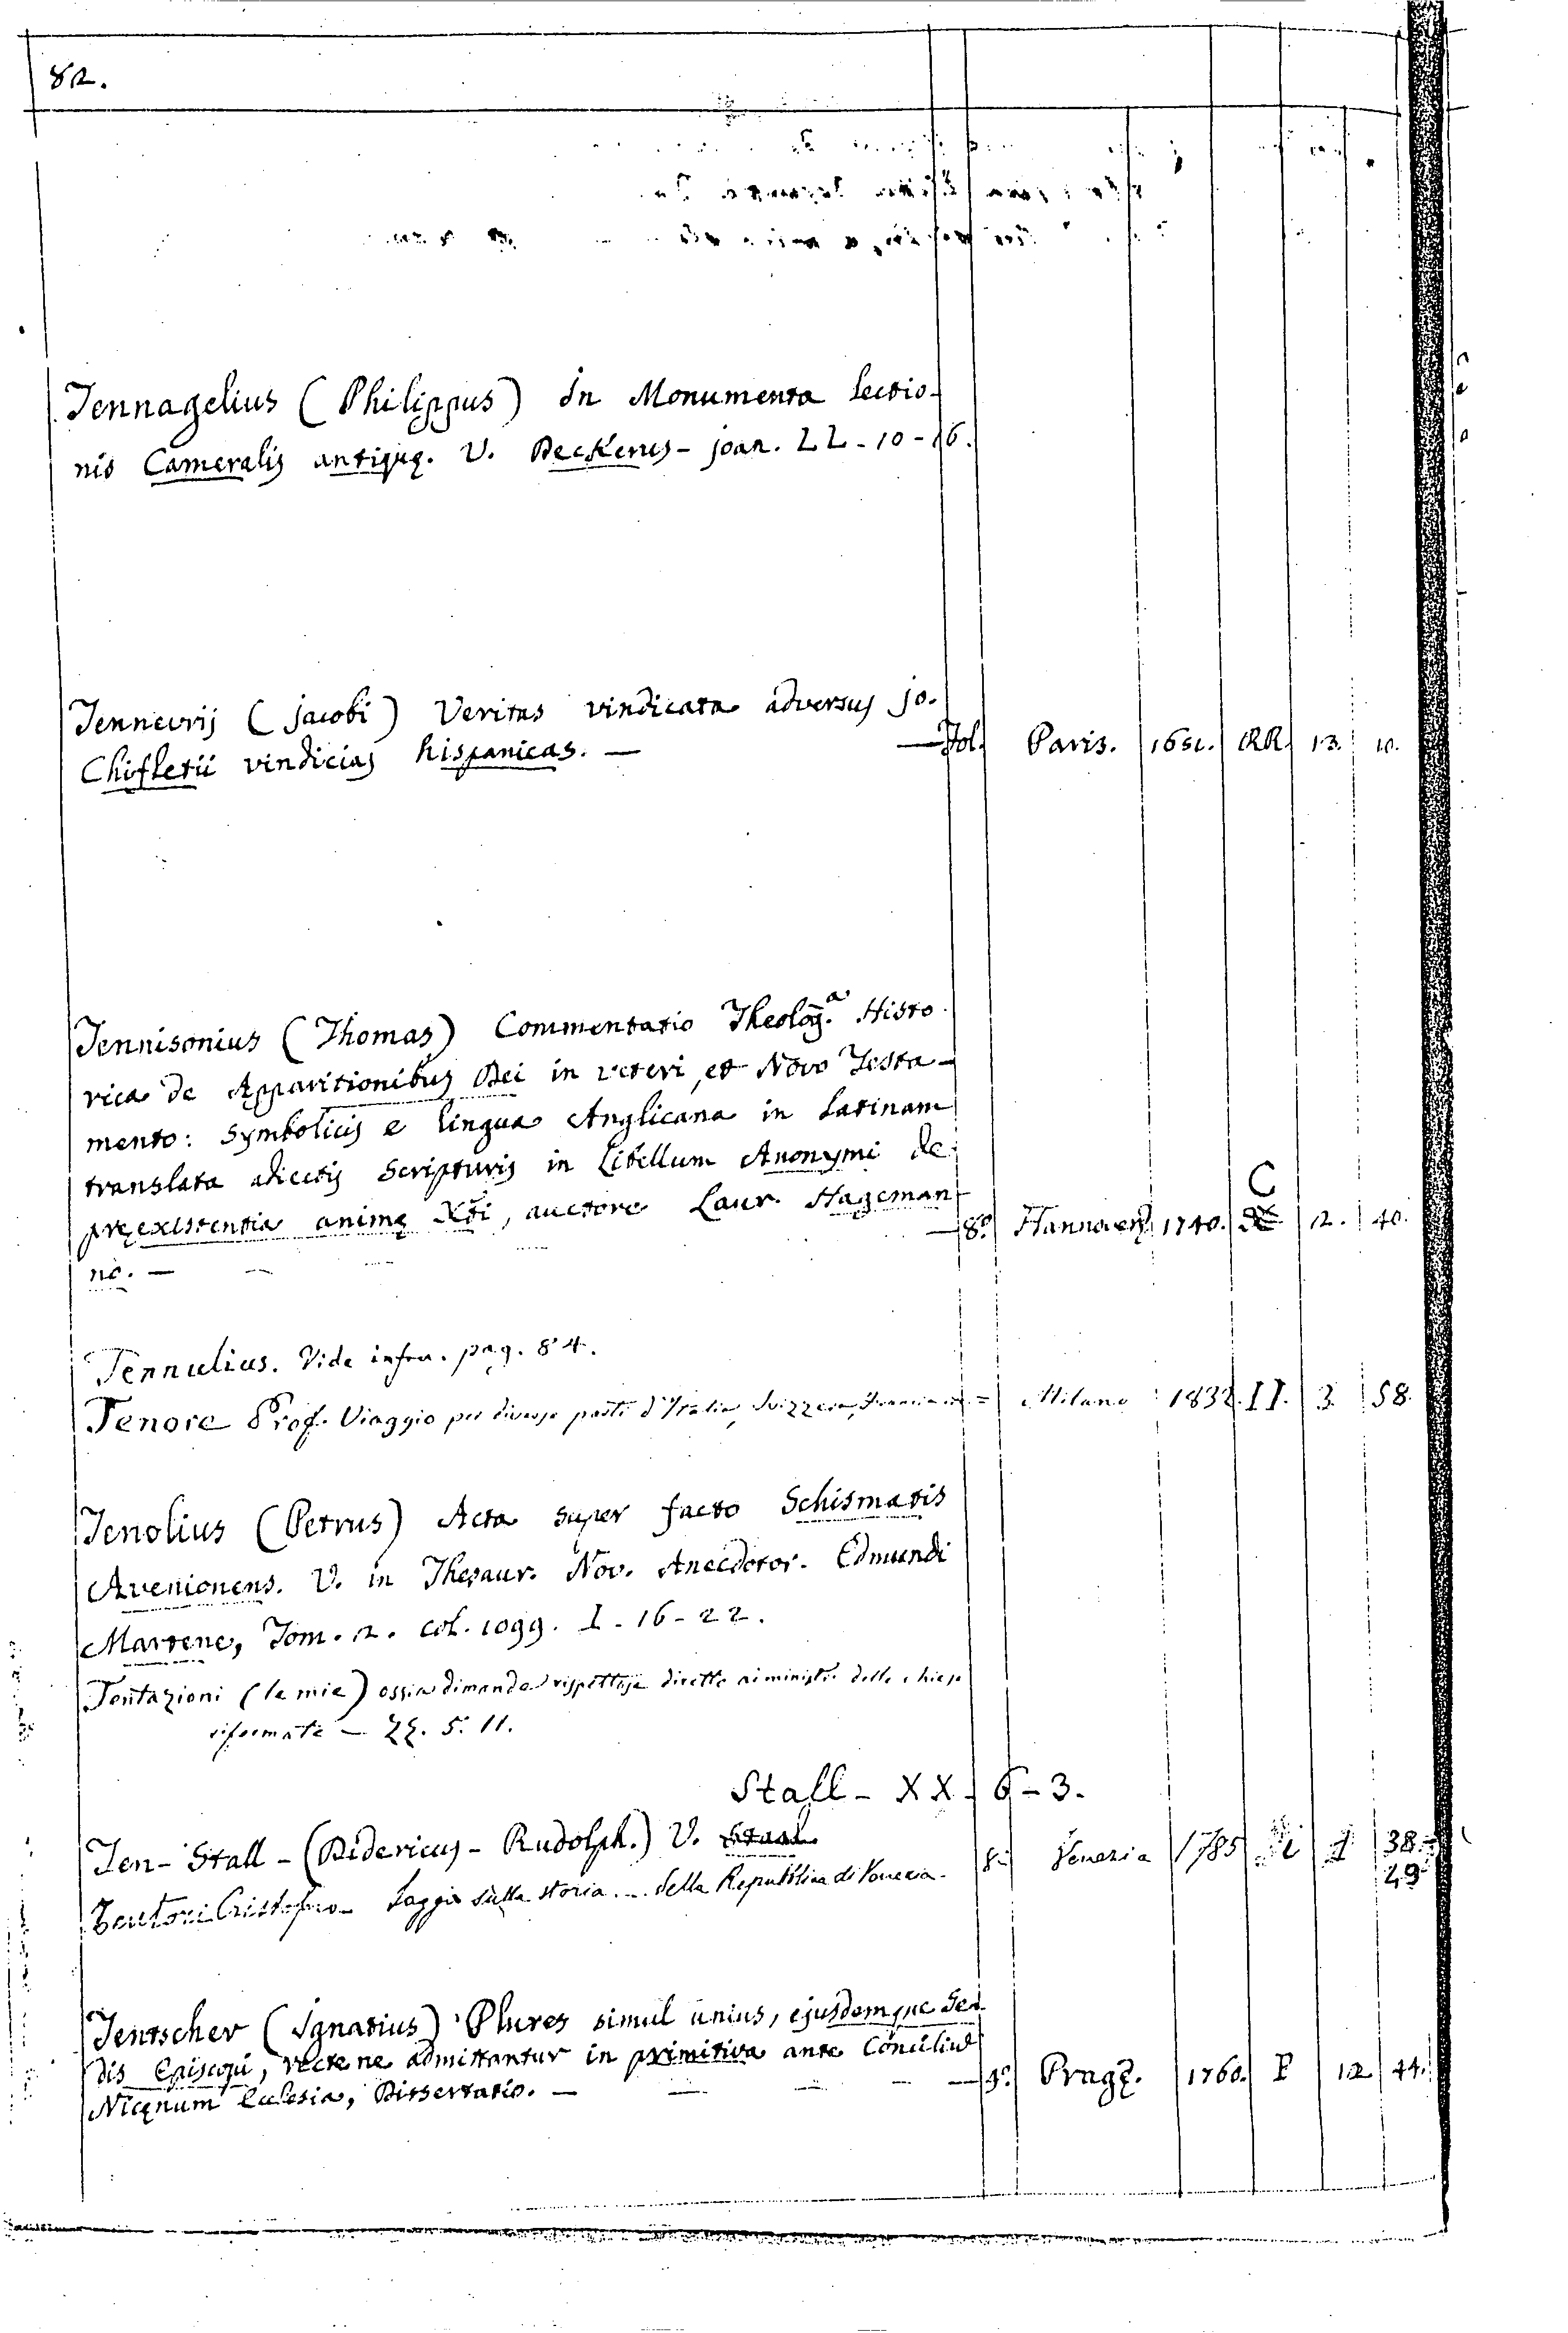 82.
Tennagelius (Philippus) in Monumenta lectio-
nis Cameralis antiquę. V. Deckerus - joan. LL - 10 - 16.
Tenneurij (jacobi) Veritas vindicata adversus jo.
Chifletii vindicias hispanicas. — — fol. Paris. 1651. RR. 13. 10.
Tennisonius (Thomas) Commentatio Theolog.ª Histo
rica de Apparitionibus Dei in veteri, et Novo Testa-
mento: Symbolicis e lingua Anglicana in Latinam
translata adiectis Scripturis in Libellum Anonymi de
pręexistentia animę Xti, auctore Laur. Hageman
no. — — 8º Hannoverę 1740. C 12. 40.
Tennulius. Vide infra. pag. 84.
Tenore Prof. Viaggio per diverse parti d'Italia, Svizzera, Francia = Milano 1832. II. 3. 58.
Tenolius (Petrus) Acta super facto Schismatis
Avenionens. V. in Thesaur. Nov. Anecdotor. Edmundi
Martene, Tom. 2. col. 1099. I - 16 - 22.
Tentazioni (le mie) ossia dimande rispettose dirette ai ministri delle chiese
riformate — ZZ. 5. 11.
Stall - XX - 6 - 3.
Ten - Stall - (Didericus - Rudolph.) V. Staal
Tentori Cristoforo - Saggio sulla storia ... della Repubblica di Venezia. 8. Venezia 1785 1 38-
49
Tentscher (Ignatius) Plures simul unius, ejusdemque Se-
dis Episcopi, recte ne admittantur in primitiva ante Conciliū
Nicęnum Ecclesia, Dissertatio. — — — — 4º. Pragę. 1760. P 12 44.